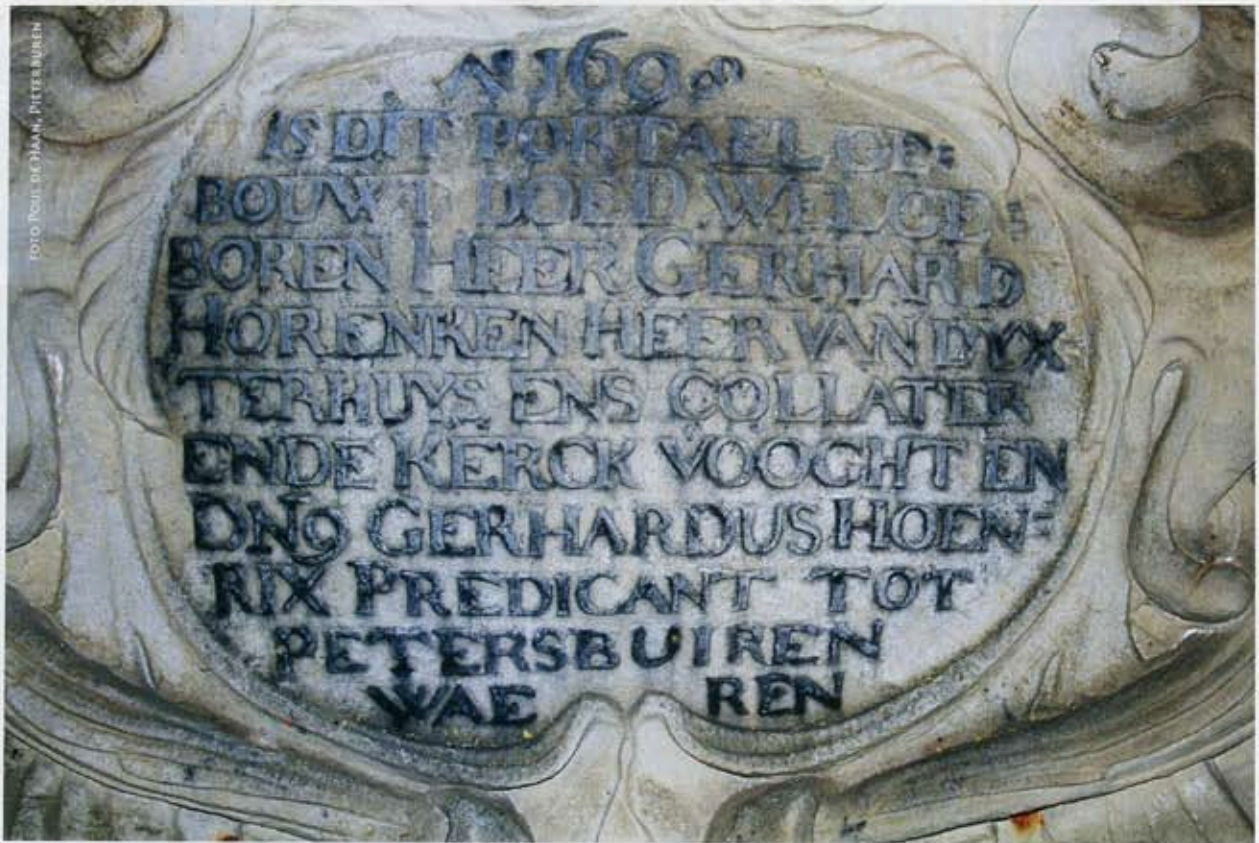 FOTO POUL DE HAAN, PIETERBUREN
IS DIT PORTAEL GE=
BOUWT DOE D. WELGE=
BOREN HEER GERHARD
HORENKEN HEER VAN DYX
TERHUYS ENS COLLATER
ENDE KERCK VOOGHT EN
DN9 GERHARDUS HOEN=
RIX PREDICANT TOT
PETERSBUIREN
WAE REN